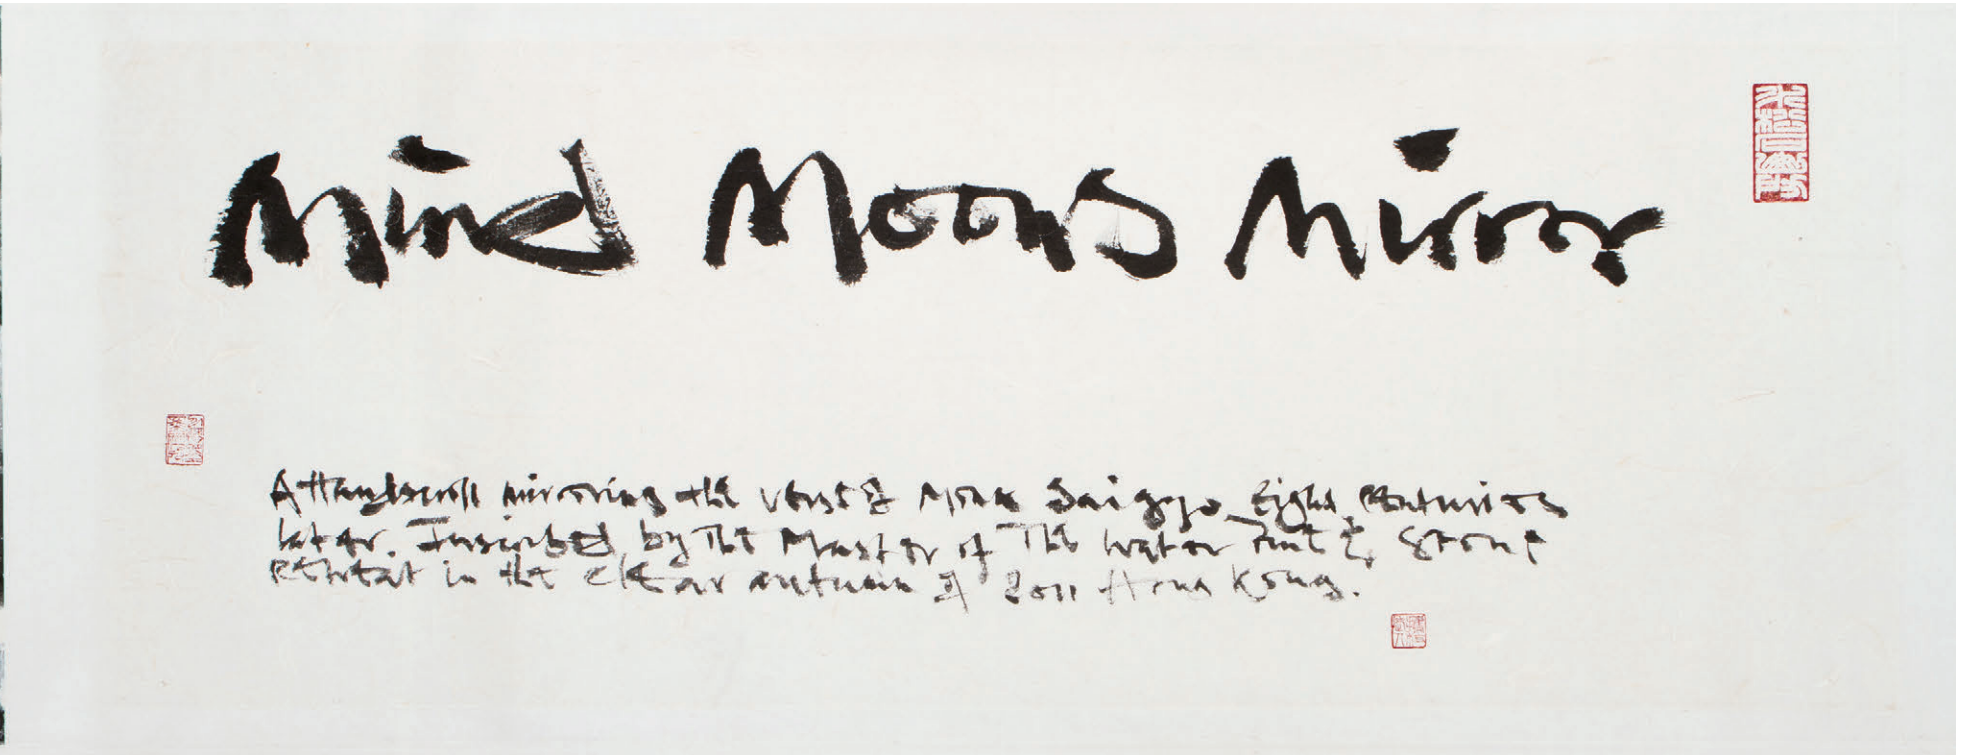 Mind Moons Mirror
A Handscroll mirroring the verse of Monk Saigyo eight centuries
later. Inscribed by The Master of The Water Pine & Stone
retreat in the clear autumn of 2011 Hong Kong.